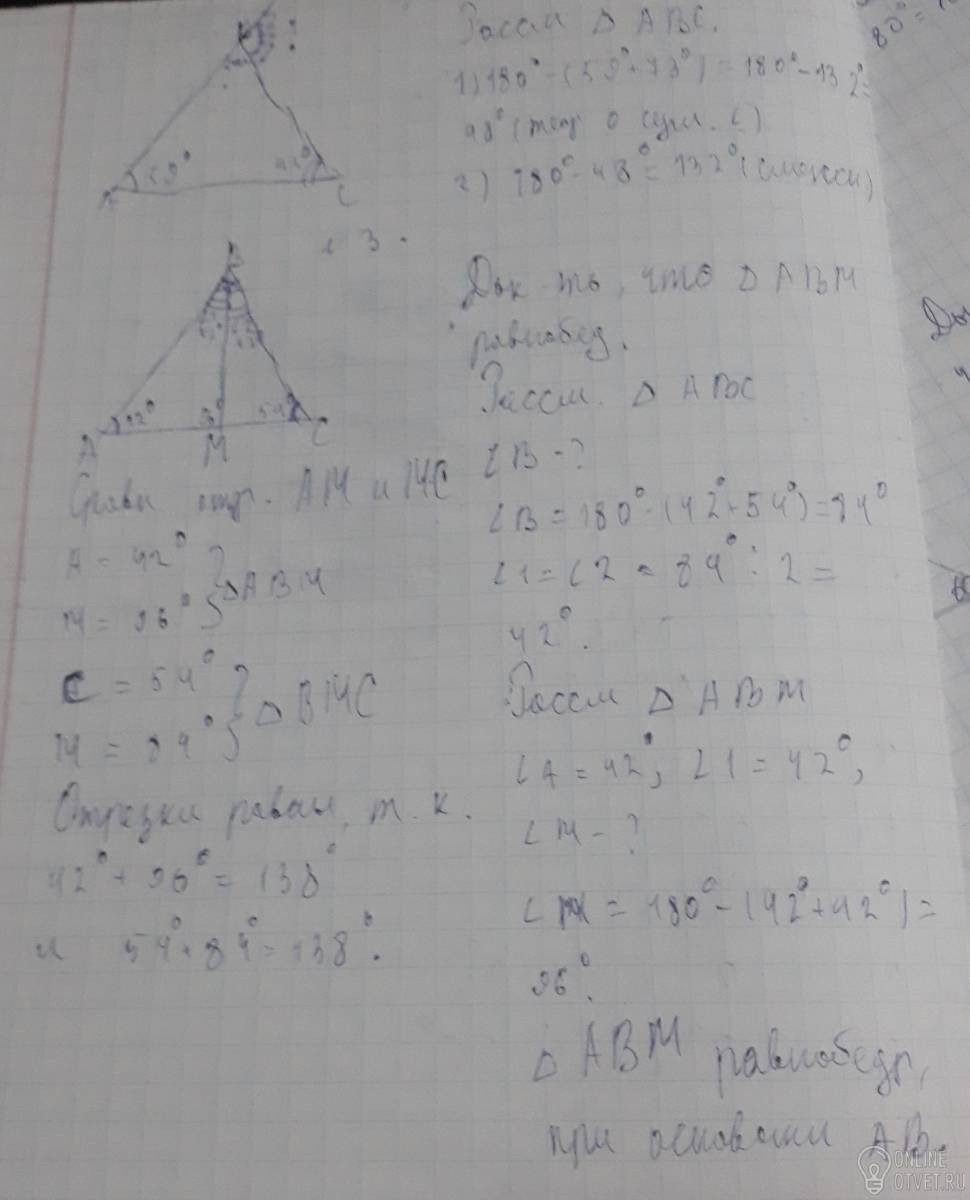 Рассм Δ ABC.
1) 180° - (59° + 73°) = 180° - 132° =
48° (теор о сумм. ∠)
2) 180° - 48° = 132° (смежн)
A
C
3.
B
A
42°
M
54°
C
Док-ть, что Δ ABM
равнобед.
Рассм. Δ ABC
∠B - ?
∠B = 180° - (42° + 54°) = 84°
∠1 = ∠2 = 84° : 2 =
42°.
Рассм Δ ABM
∠A = 42°, ∠1 = 42°,
∠M - ?
∠M = 180° - (42° + 42°) =
96°.
Δ ABM равнобедр,
при основании AB.
Сравн отр. AM и MC
A = 42°
M = 96° } ΔABM
C = 54°
M = 84° } Δ BMC
Отрезки равны, т. к.
42° + 96° = 138°
и 54° + 84° = 138°.
80°
ONLINE
OTVET.RU